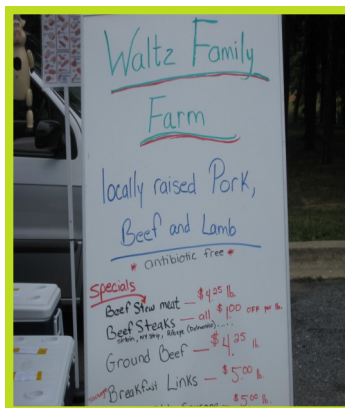 Waltz Family
Farm
locally raised Pork,
Beef and Lamb
* antibiotic free *
Specials
Beef Stew meat — $4.25 lb.
Beef Steaks — all $1.00 OFF per lb.
sirloin, NY strip, Ribeye (Delmonico).....
Ground Beef — $4.25 lb.
Breakfast Links — $5.00 lb.
$5.00 lb.